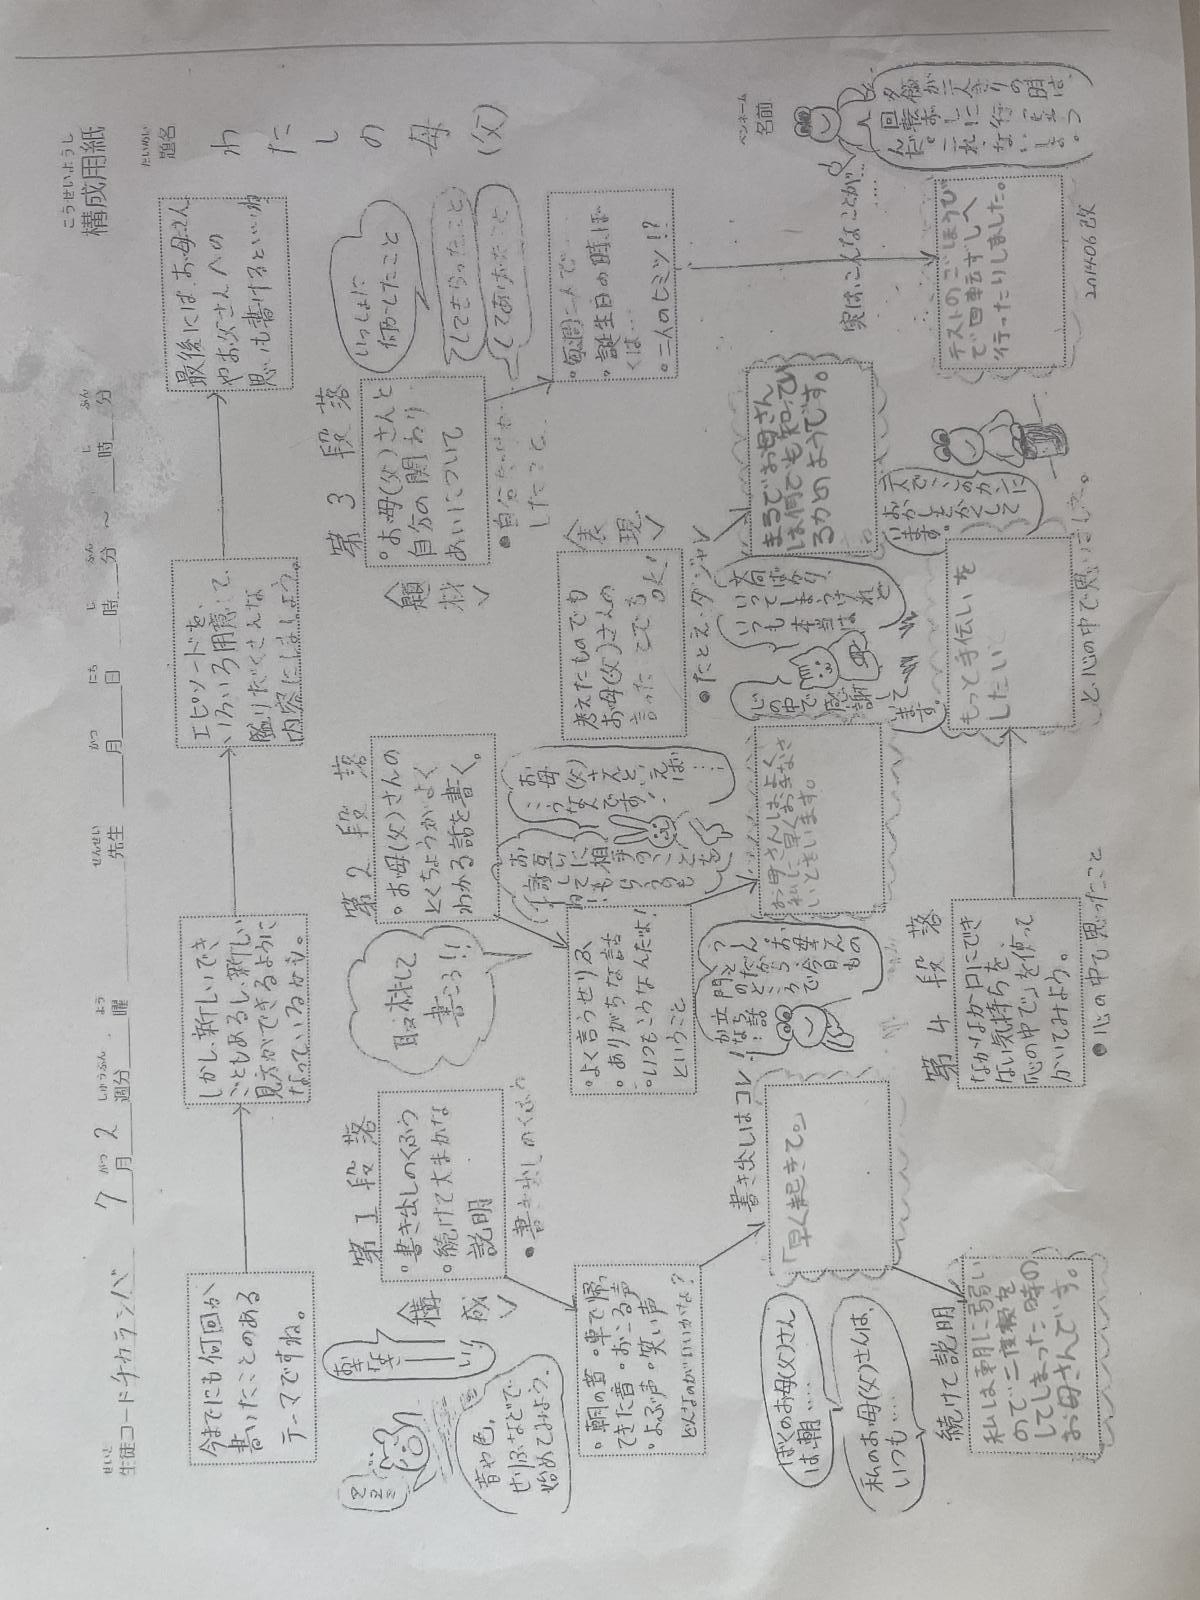 構成用紙
こうせいようし
生徒コード チカラシバ 7月2週分 曜 先生 月 日 時 分 ～ 時 分
せいと がつ しゅうぶん よう せんせい がつ にち じ ふん じ ふん
題名
だいめい
わたしの母(父)
ペンネーム
名前
今までにも何回か
書いたことのある
テーマですね。
しかし、新しいでき
ごともあるし、新しい
見方ができるように
なっているかも。
エピソードを、
いろいろ用意して、
盛りだくさんな
内容にしましょう。
最後には、お母さん
やお父さんへの
思いも書けるといいね
第1段落
構成
・書き出しのくふう
・続けて大まかな
説明
●書き出しのくふう
音や色、
せりふなどで
始めてみよう。
・朝の音・車で帰っ
てきた音・おこる声
・よぶ声・笑い声
どんなのがいいかな？
書き出しはコレ！
「早く起きて。」
ぼくのお母(父)さん
は朝……
私のお母(父)さんは、
いつも……
続けて説明
私は朝に弱い
ので二度寝を
してしまった時の
お母さんです。
取材して
書こう!!
第2段落
・お母(父)さんの
とくちょうがよく
わかる話を書く。
お母(父)さんと
いえば
こうな人です!
……
・よく言うせりふ
・ありがちな話
・いつもこうなんだよ！
ということ
お母さんはよく
私に早くおきなさ
いともいいます。
第3段落
題材
・お母(父)さんと
自分の関わり
あいについて
●自分が
したこと
いっしょに
何かしたこと
してもらったこと
してあげたこと
・毎週二人で…
・誕生日の時、ぼ
くは…
・二人のヒミツ!?
実は、こんなことが…
テストのごほうび
で回転ずしへ
行ったりしました。
表現
考えたものでも
お母(父)さんの
言ったことでもOK!
●たとえ・ダジャレ
まるでお母さん
は何でも知ってい
るかのようです。
文句ばかり
いってしまうけれど
いつも本当は
心の中で
感謝して
います。
第4段落
なかなか口にでき
ない気持ちを、
「心の中で」を使って
かいてみよう。
●心の中で思ったこと
もっと手伝いを
したい
と、心の中で思いました。
201406改